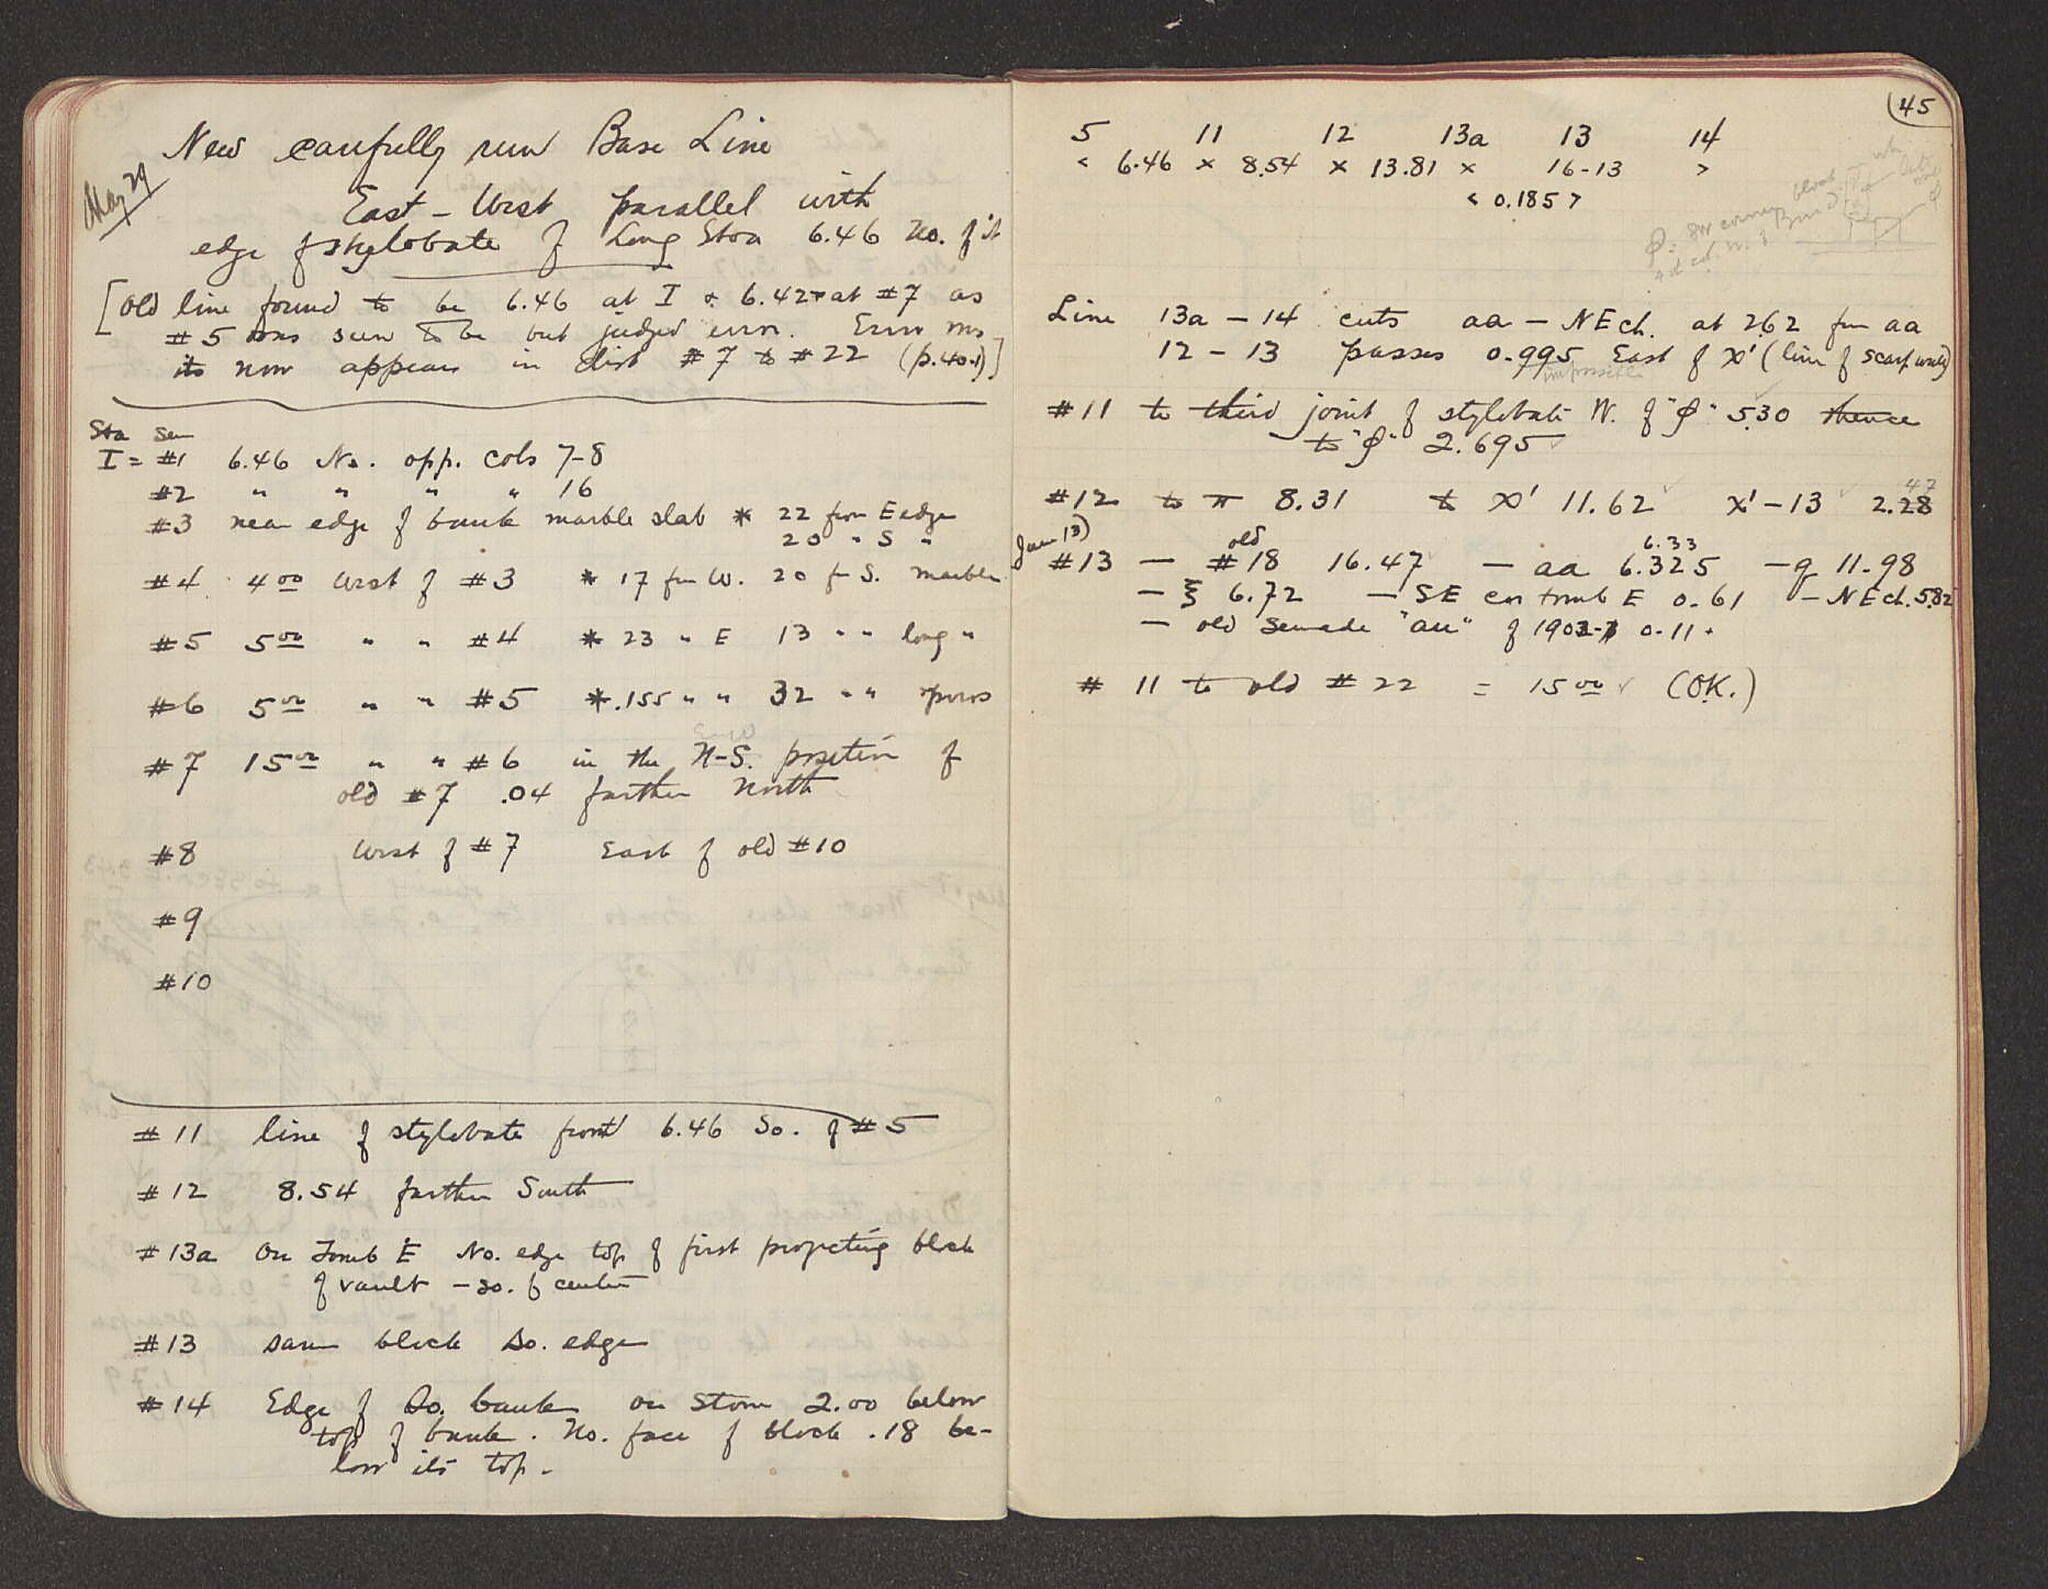 May 29
New carefully run Base Line
East - West parallel with
edge of stylobate of Long Stoa 6.46 No. of it
[Old line found to be 6.46 at I & 6.42 at #7 as
#5 was seen to be out judged error. Error
now appears in dist #7 to #22 (p.40.1)]
Sta
I = #1 6.46 No. opp. cols 7-8
#2 " " " " 16
#3 near edge of bank marble slab * 22 from E edge
20 " S "
#4 4.00 West of #3 * 17 fr W. 20 fr S. marble
#5 5.00 " " #4 * 23 " E 13 " " long "
#6 5.00 " " #5 * .155 " " 32 " " poros
#7 15.00 " " #6 in the N-S. position of
old #7 .04 farther North
#8 West of #7 East of old #10
#9
#10
#11 line of stylobate front 6.46 So. of #5
#12 8.54 farther South
#13a On Tomb E No. edge top of first projecting block
of vault - so. of center
#13 same block So. edge
#14 Edge of So. bank on stone 2.00 below
top of bank. No. face of block .18 be-
low its top.
45
5 11 12 13a 13 14
< 6.46 × 8.54 × 13.81 × 16-13 >
< 0.185 >
Φ = SW corner block
Line 13a - 14 cuts aa - NE ch. at 2.62 fm aa
12 - 13 passes 0.995 East of X' (line of scarp wall)
impossible
#11 to third joint of stylobate W. of "Φ" 5.30 thence
to "Φ" 2.695
47
#12 to π 8.31 to X' 11.62 X' - 13 2.28
Jan 13)
old 6.33
#13 - #18 16.47 - aa 6.325 - q 11.98
- ξ 6.72 - SE cor tomb E 0.61 - NE ch. 5.82
- old "aa" of 1902-3 0.11
# 11 to old # 22 = 15.00 ✓ (OK.)